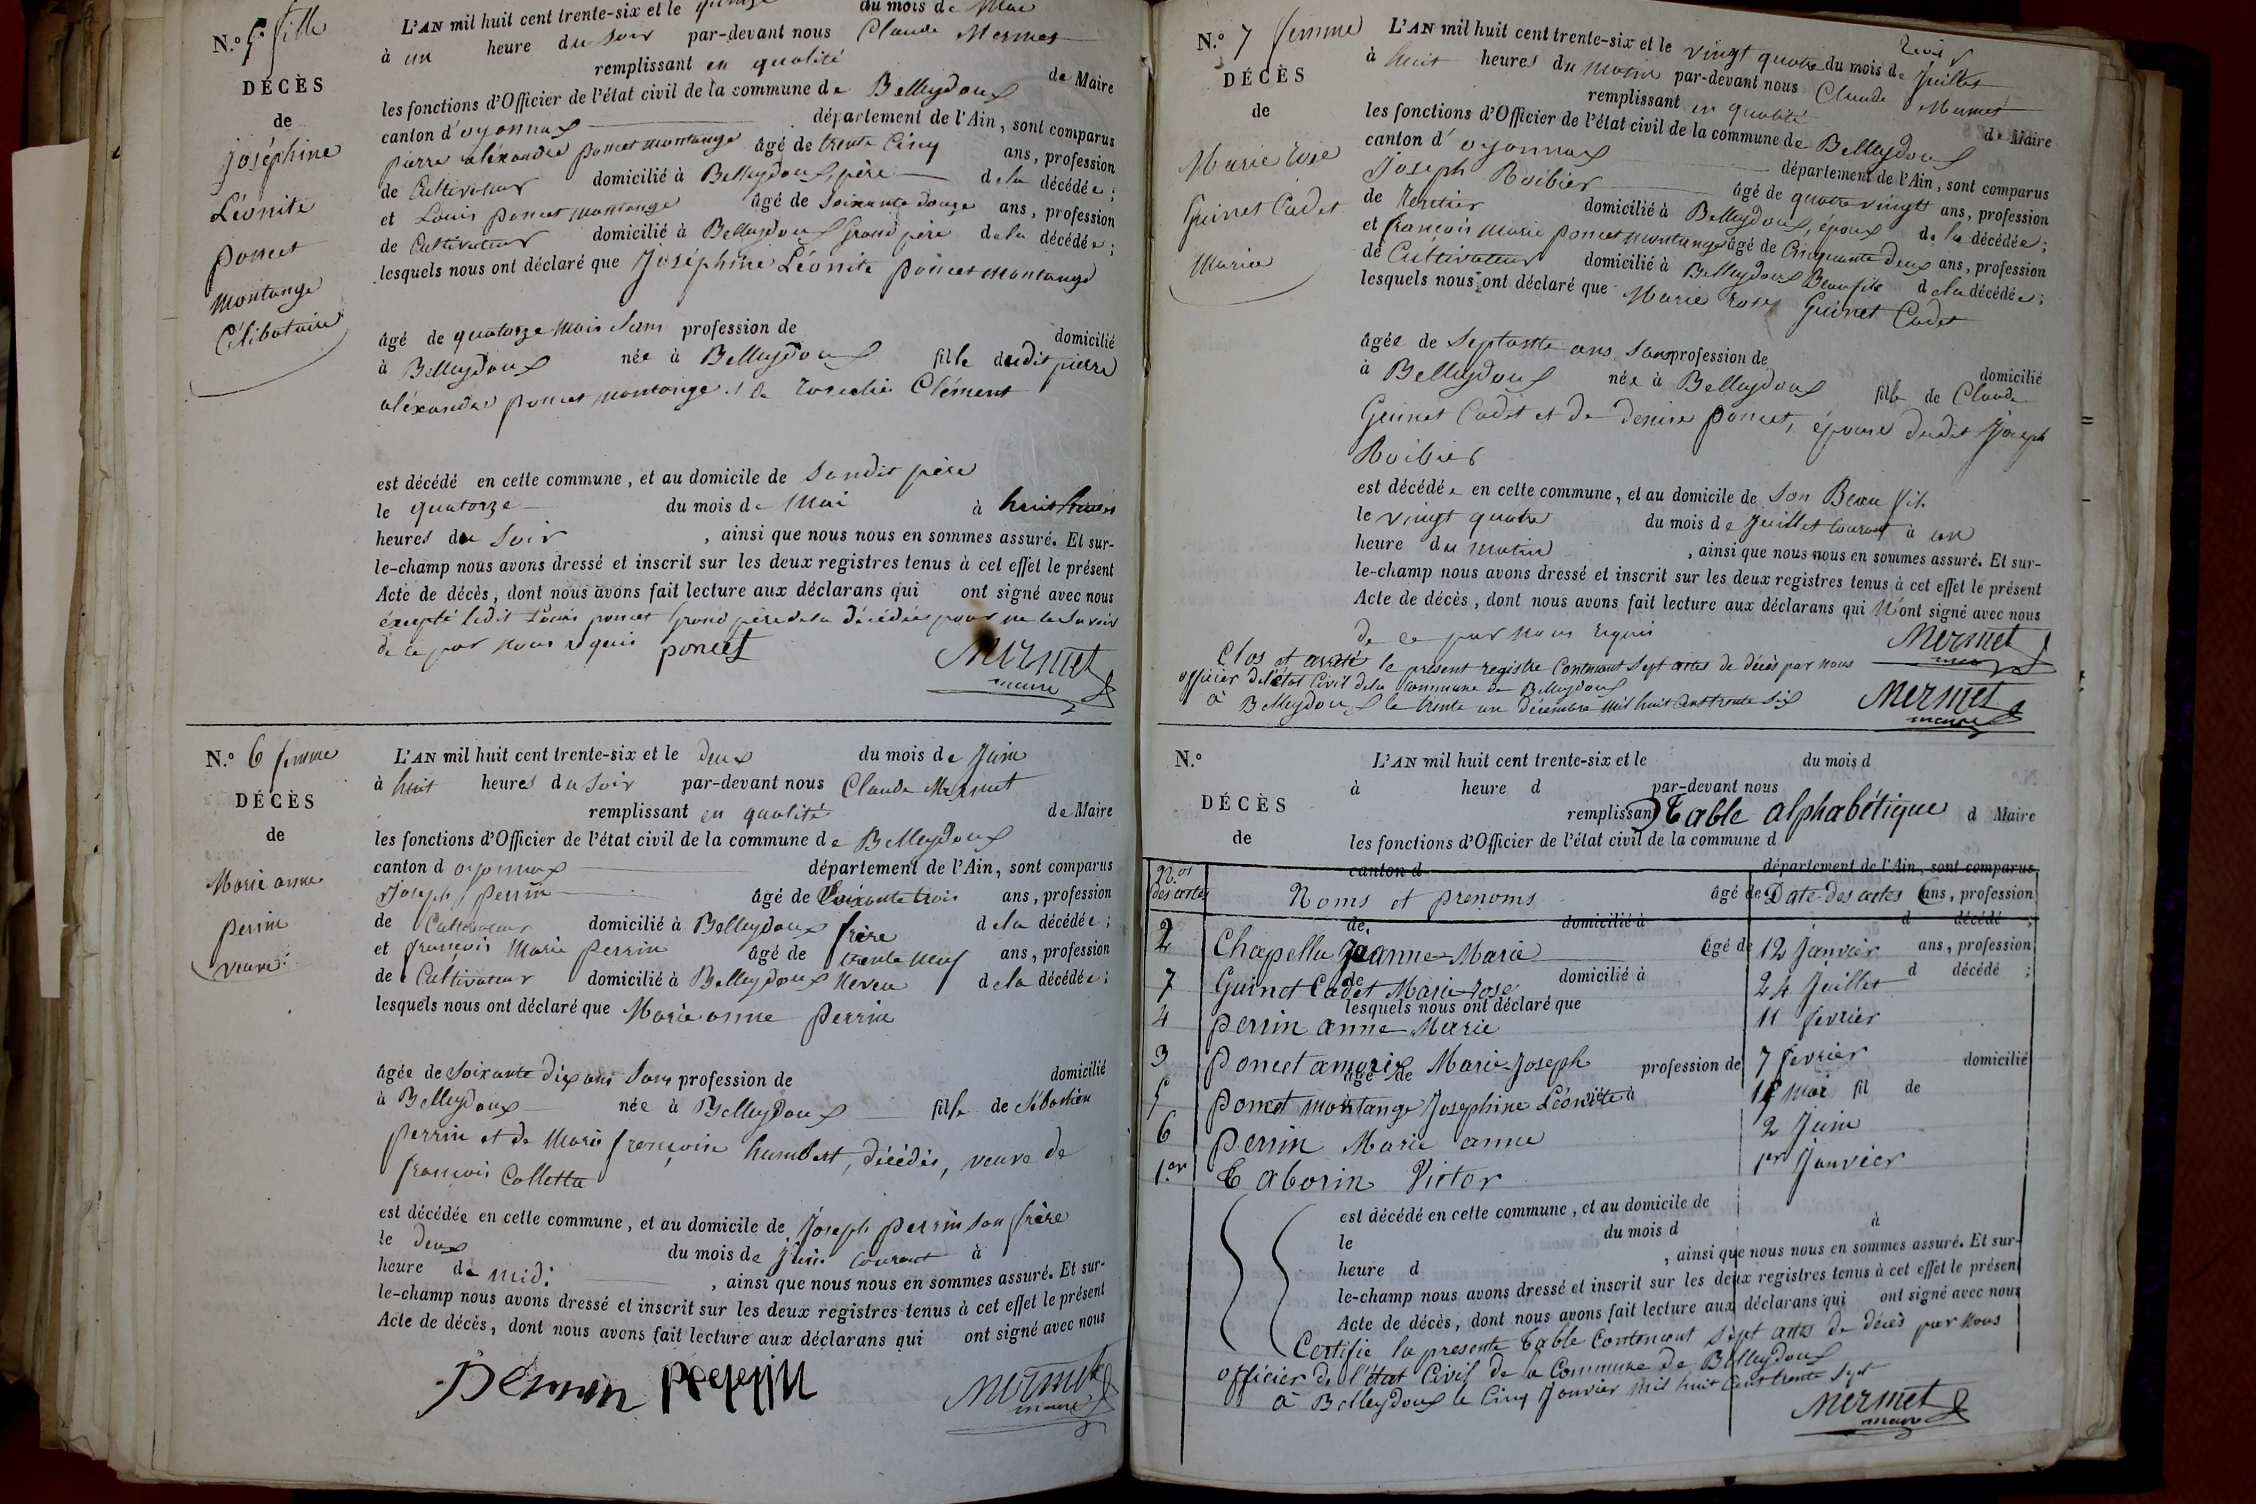 N.º 5 fille
DÉCÈS
de
Joséphine
Léonite
poncet
montange
Célibataire
L'AN mil huit cent trente-six et le quinze du mois de Mai
à un heure du soir par-devant nous Claude Mermet
remplissant en qualité de Maire
les fonctions d'Officier de l'état civil de la commune de Belleydoux
canton d'oyonnax département de l'Ain, sont comparus
pierre alexandre poncet montange âgé de trente cinq ans, profession
de Cultivateur domicilié à Belleydoux, père de la décédée;
et Louis poncet montange âgé de soixante douze ans, profession
de Cultivateur domicilié à Belleydoux grand père de la décédée;
lesquels nous ont déclaré que Joséphine Léonite poncet montange
âgé de quatorze mois sans profession de domicilié
à Belleydoux née à Belleydoux fille dudit pierre
aléxandre poncet montange et de rosalie Clément
est décédé en cette commune, et au domicile de sondit père
le quatorze du mois de Mai à huit heures
heures du soir, ainsi que nous nous en sommes assuré. Et sur-
le-champ nous avons dressé et inscrit sur les deux registres tenus à cet effet le présent
Acte de décès, dont nous avons fait lecture aux déclarans qui ont signé avec nous
éxcepté ledit Louis poncet grand père de la décédée pour ne le savoir
de ce par nous requis poncet
Mermet
maire
N.º 6 femme
DÉCÈS
de
Marie anne
perrin
veuve
L'AN mil huit cent trente-six et le deux du mois de Juin
à huit heures du soir par-devant nous Claude Mermet
remplissant en qualité de Maire
les fonctions d'Officier de l'état civil de la commune de Belleydoux
canton d oyonnax département de l'Ain, sont comparus
Joseph perrin âgé de soixante trois ans, profession
de Cultivateur domicilié à Belleydoux frère de la décédée;
et françois Marie perrin âgé de trente neuf ans, profession
de Cultivateur domicilié à Belleydoux Neveu de la décédée;
lesquels nous ont déclaré que Marie anne perrin
âgée de soixante dix ans sans profession de domicilié
à Belleydoux née à Belleydoux fille de Sébastien
perrin et de Marie françoise humbert, décédés, veuve de
françois Colletta
est décédée en cette commune, et au domicile de Joseph perrin son frère
le deux du mois de Juin courant à
heure de midi, ainsi que nous nous en sommes assuré. Et sur-
le-champ nous avons dressé et inscrit sur les deux registres tenus à cet effet le présent
Acte de décès, dont nous avons fait lecture aux déclarans qui ont signé avec nous
perrin
Mermet
maire
N.º 7 femme
DÉCÈS
de
Marie rose
Guinet Cadet
Marié
L'AN mil huit cent trente-six et le vingt quatre du mois de Juillet
à huit heures du matin par-devant nous Claude Mermet
remplissant en qualité de Maire
les fonctions d'Officier de l'état civil de la commune de Belleydoux
canton d'oyonnax département de l'Ain, sont comparus
Joseph Roibier âgé de quatre vingts ans, profession
de Rentier domicilié à Belleydoux, époux de la décédée;
et françois marie poncet montange âgé de Cinquante deux ans, profession
de Cultivateur domicilié à Belleydoux Beau fils de la décédée;
lesquels nous ont déclaré que Marie rose Guinet Cadet
âgée de septante ans sans profession de domicilié
à Belleydoux née à Belleydoux fille de Claude
Guinet Cadet et de denise poncet, épouse dudit Joseph
Roibier
est décédée en cette commune, et au domicile de son Beau fils
le vingt quatre du mois de Juillet courant à un
heure du matin, ainsi que nous nous en sommes assuré. Et sur-
le-champ nous avons dressé et inscrit sur les deux registres tenus à cet effet le présent
Acte de décès, dont nous avons fait lecture aux déclarans qui N'ont signé avec nous
de ce par nous requis
Mermet
maire
Clos et arrêté le présent registre Contenant sept actes de décès par nous
officier de l'état Civil de la Commune de Belleydoux
à Belleydoux le trente un décembre mil huit cent trente six
Mermet
maire
N.º
DÉCÈS
de
L'AN mil huit cent trente-six et le du mois d
à heure d par-devant nous
remplissant Table alphabétique d Maire
les fonctions d'Officier de l'état civil de la commune d
canton d département de l'Ain, sont comparus
N.os des actes Noms et prenoms âgé de Date des actes ans, profession
de domicilié à d décédé;
2 Chapellu Jeanne Marie âgé de 12 Janvier ans, profession
de domicilié à d décédé;
7 Guinet Cadet Marie rose 24 Juillet
lesquels nous ont déclaré que
4 perrin anne Marie 11 fevrier
3 Poncet Marie Joseph 7 fevrier
âgé de profession de domicilié
5 poncet montange Josephine Léonite 15 mai
à né à fil de
6 perrin Marie anne 2 Juin
1.er Taborin Victor 1er Janvier
est décédé en cette commune, et au domicile de
le du mois d à
heure d, ainsi que nous nous en sommes assuré. Et sur-
le-champ nous avons dressé et inscrit sur les deux registres tenus à cet effet le présent
Acte de décès, dont nous avons fait lecture aux déclarans qui ont signé avec nous
Certifie la presente table Contenant sept actes de décès par nous
officier de l'état Civil de la Commune de Belleydoux
à Belleydoux le Cinq Janvier mil huit cent trente sept
Mermet
maire